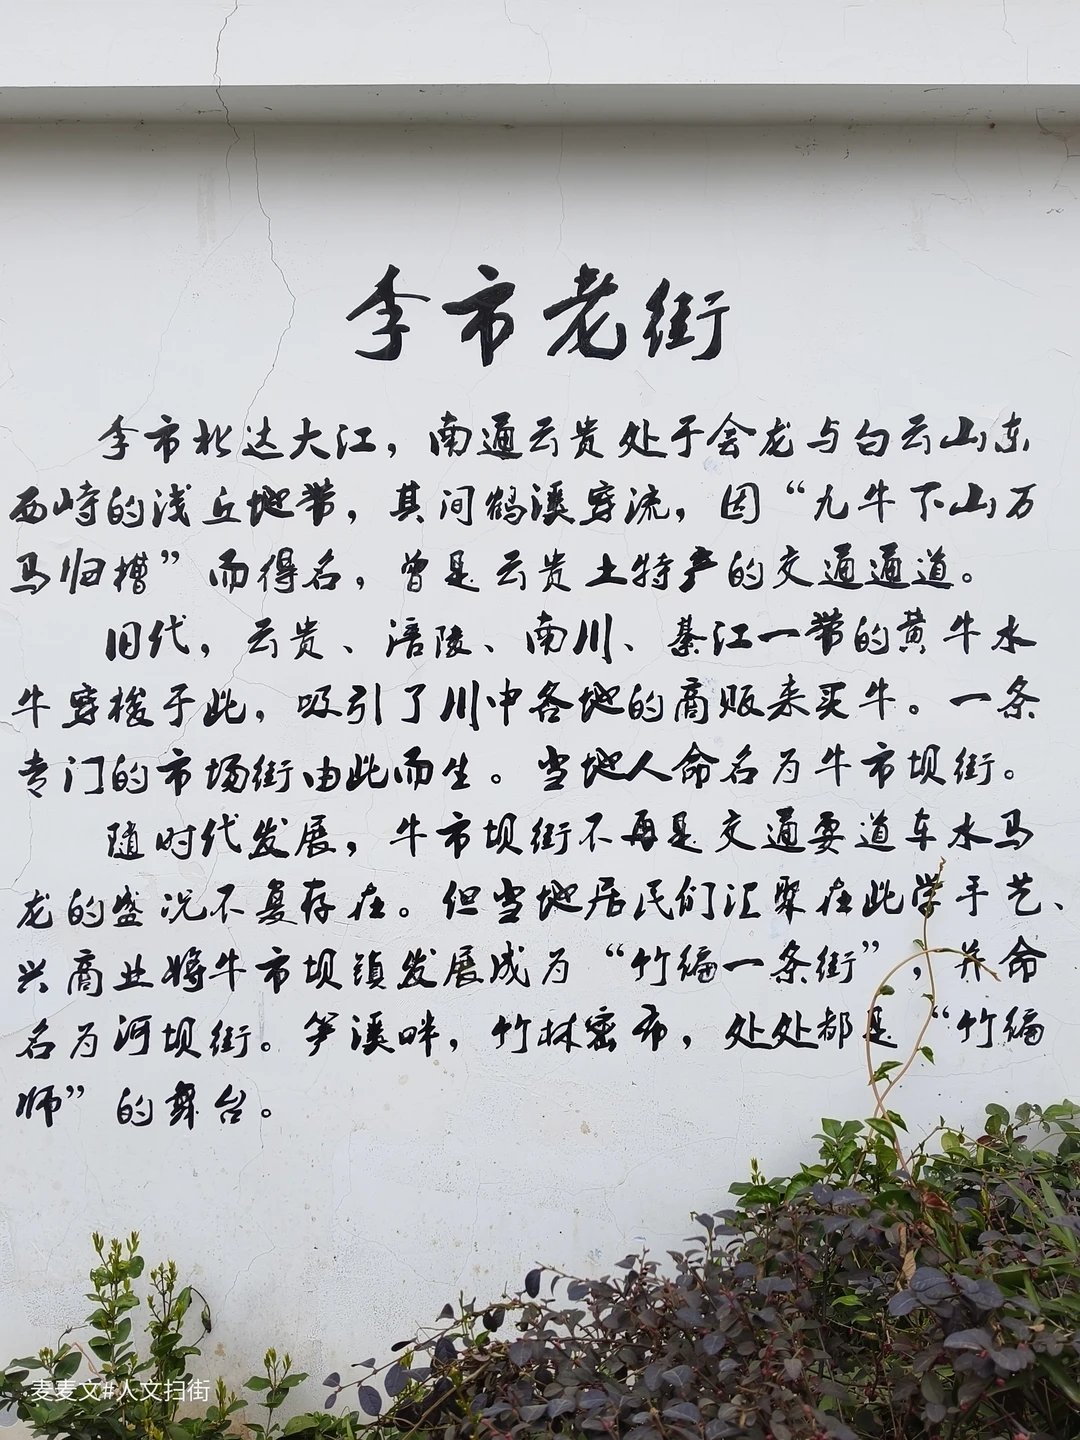 李市老街
李市北达大江，南通云贵处于会龙与白云山东
西峙的浅丘地带，其间鹤溪穿流，因“九牛下山万
马归槽”而得名，曾是云贵土特产的交通通道。
旧代，云贵、涪陵、南川、綦江一带的黄牛水
牛穿梭于此，吸引了川中各地的商贩来买牛。一条
专门的市场街由此而生。当地人命名为牛市坝街。
随时代发展，牛市坝街不再是交通要道车水马
龙的盛况不复存在。但当地居民们汇聚在此学手艺、
兴商业将牛市坝镇发展成为“竹编一条街”，并命
名为河坝街。笋溪畔，竹林密布，处处都是“竹编
师”的舞台。
麦麦文#人文扫街